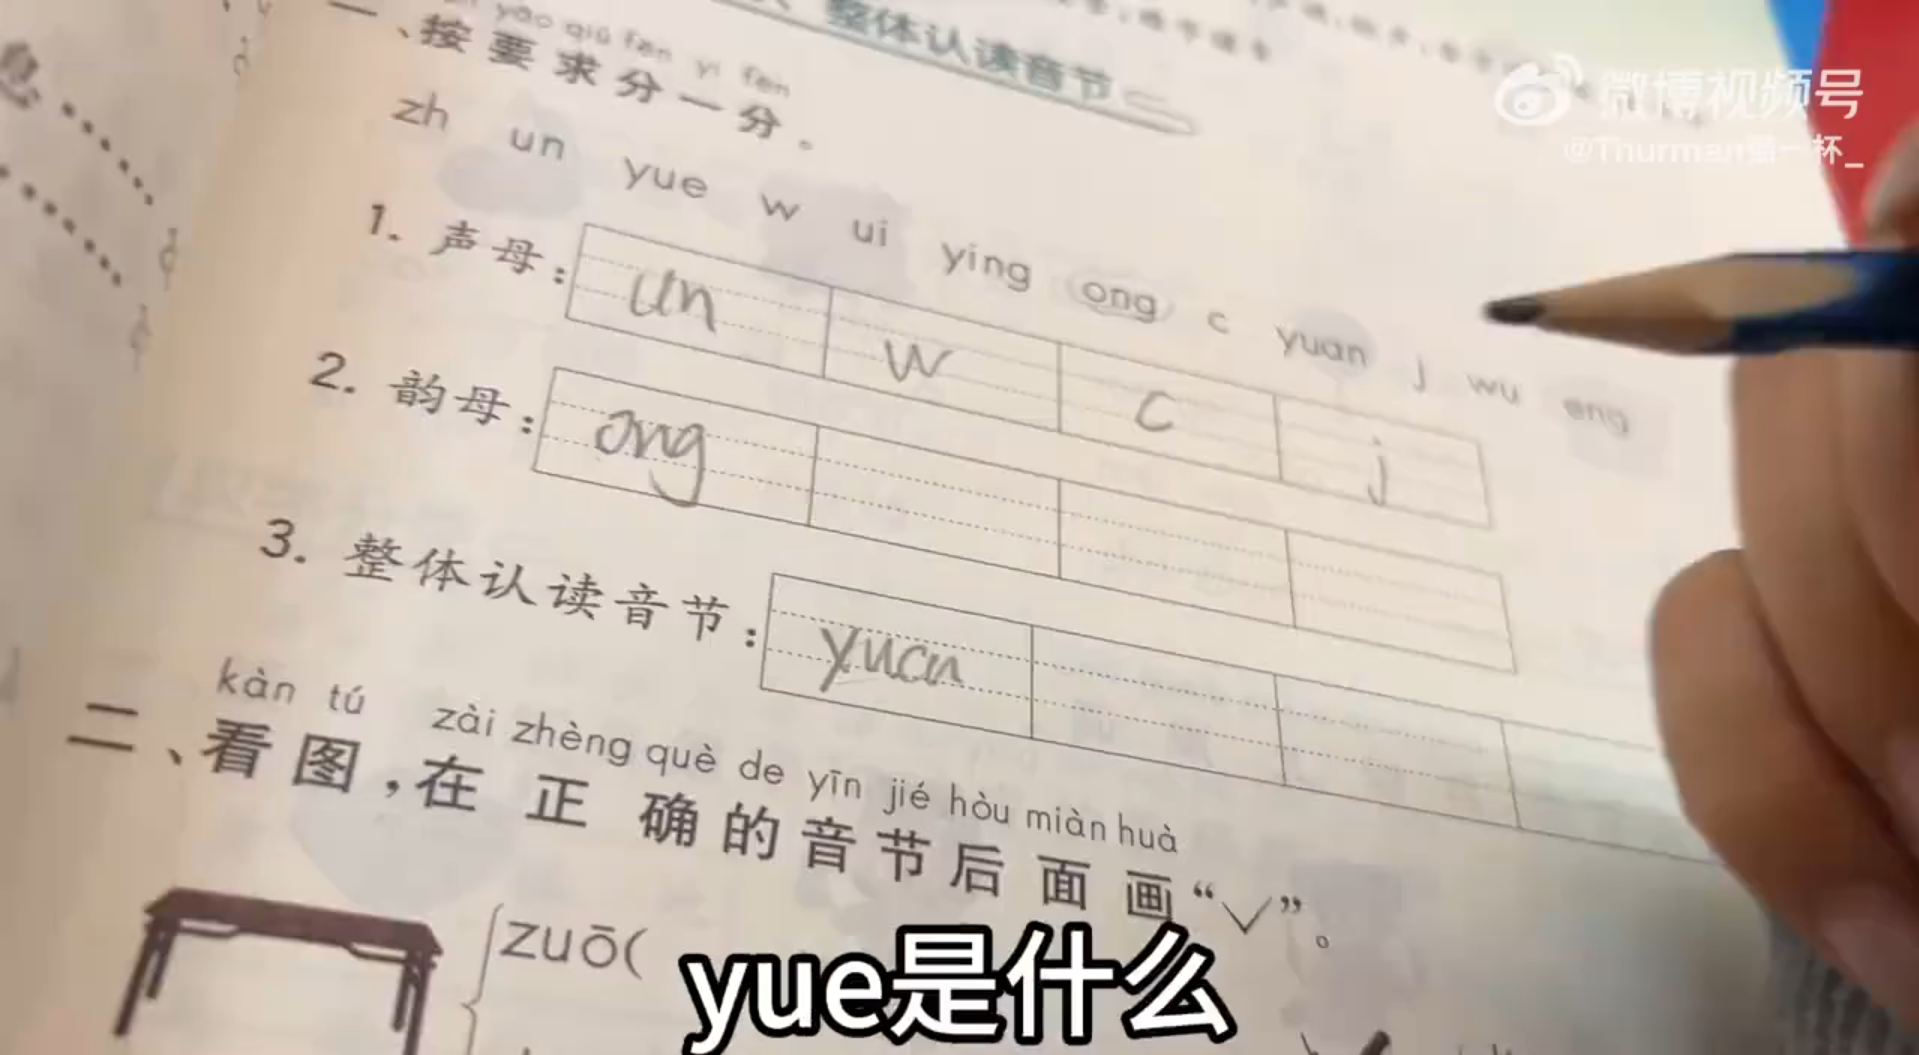 整体认读音节
yāo qiú fēn yi fēn
一、按要求分一分。
zh un yue w ui ying ong c yuan j wu eng
1. 声母: un w c j
2. 韵母: ong
3. 整体认读音节: yuan
kàn tú zài zhèng què de yīn jié hòu miàn huà
二、看图,在正确的音节后面画“✓”。
zuō(
yue是什么
微博视频号
@Thurman 一杯_